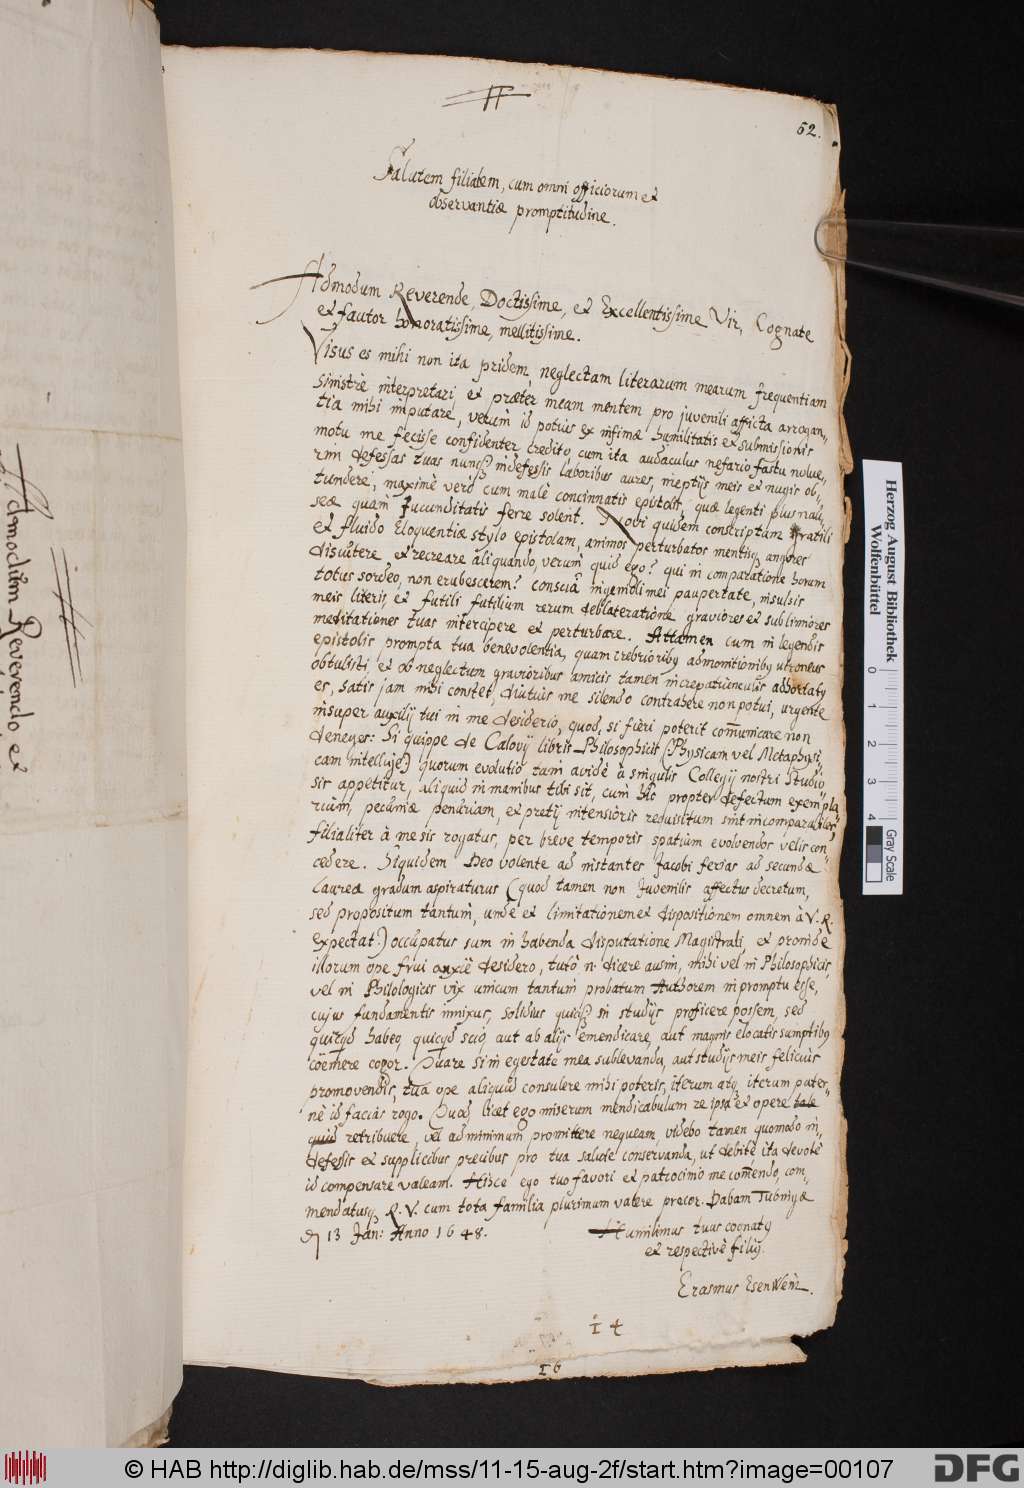 52.
Salutem filialem, cum omni officiorum et
observantiæ promptitudine.
Admodum Reverende, Doctissime, et Excellentissime Vir, Cognate
et fautor honoratissime, mellitissime.
Visus es mihi non ita pridem, neglectam literarum mearum frequentiam
sinistrè interpretari, et præter meam mentem pro juvenili afficta arrogan„
tia mihi imputare, verùm id potius ex infimæ humilitatis et submissionis
motu me fecisse confidenter credito, cum ita audaculus nefario fastu nolue„
rim defessas tuas nunq indefessis laboribus aures, ineptijs meis et nugis ob„
tundere, maximè verò cum malè concinnatis epistolis, quæ legenti plus nau„
seæ quàm Jucunditatis ferre solent. Novi quidem conscriptam
et fluido Eloquentiæ stylo epistolam, animos perturbatos mentisq angores
discutere et recreare aliquando, verum quid ego? qui in comparatione horum
totus sordeo, non erubescerem? consciâ ingenioli mei paupertate, insulsis
meis literis, et futili futilium rerum deblateratione graviores et sublimiores
meditationes tuas intercipere et perturbare. Attamen cum in legendis
epistolis prompta tua benevolentia, quam crebrioribq admonitionibq ultroneus
obtulisti et ob neglectum gravioribus amicis tamen increpatiunculis adhortatq
es, satis jam mihi constet, diutius me silendo contrahere non potui, urgente
insuper auxilij tui in me desiderio, quod, si fieri poterit com̄unicare non
deneges: Si quippe de Calovij libris Philosophicis (Physicam vel Metaphysi„
cam intellige) quorum evolutio tam avidè à singulis Collegij nostri Studio„
sis appetitur, aliquid in manibus tibi sit, cum hîc propter defectum exempla„
rium, pecuniæ penuriam, et pretij intensioris requisitum sint incomparabiles,
filialiter à me sis rogatus, per breve temporis spatium evolvendos velis con„
cedere. Siquidem Deo volente ad instantes Jacobi ferias ad secundæ
Laureæ gradum aspiraturus (quod tamen non Juvenilis affectus decretum,
sed propositum tantum, unde et limitationem et dispositionem omnem à V. R.
expectat) occupatus sum in habenda disputatione Magistrali, et proinde
illorum ope frui anxiè desidero, tutò n. dicere ausim, mihi vel in Philosophicis,
vel in Philologicis vix unicum tantum probatum Authorem in promptu esse,
cujus fundamentis innixus, solidius quicq in studijs proficere possem, sed
quicqd habeo, quicqd scio, aut ab alijs emendicare, aut magnis elocatis sumptibq
coëmere cogor. Quare si in egestate mea sublevanda, aut studijs meis feliciùs
promovendis, tua ope aliquid consulere mihi poteris, iterum atq iterum pater„
nè id facias rogo. Quod licet ego miserum mendicabulum re ipsâ et opere tale
quid retribuere, vel ad minimum promittere nequeam, videbo tamen quomodo in„
defessis et supplicibus precibus pro tua salute conservanda, ut debitè, ita devotè
id compensare valeam. Hisce ego tuo favori et patrocinio me com̄endo, com„
mendatusq R. V. cum tota familia plurimum valere precor. Dabam Tubingæ
13 Jan: Anno 1648.
Humilimus tuus cognatq
et respectivè filiq.
Erasmus Esenwein.
14
16
Admodum Reverendo, et
Herzog August Bibliothek
Wolfenbüttel
0 1 2 3 4
Gray Scale
© HAB http://diglib.hab.de/mss/11-15-aug-2f/start.htm?image=00107
DFG